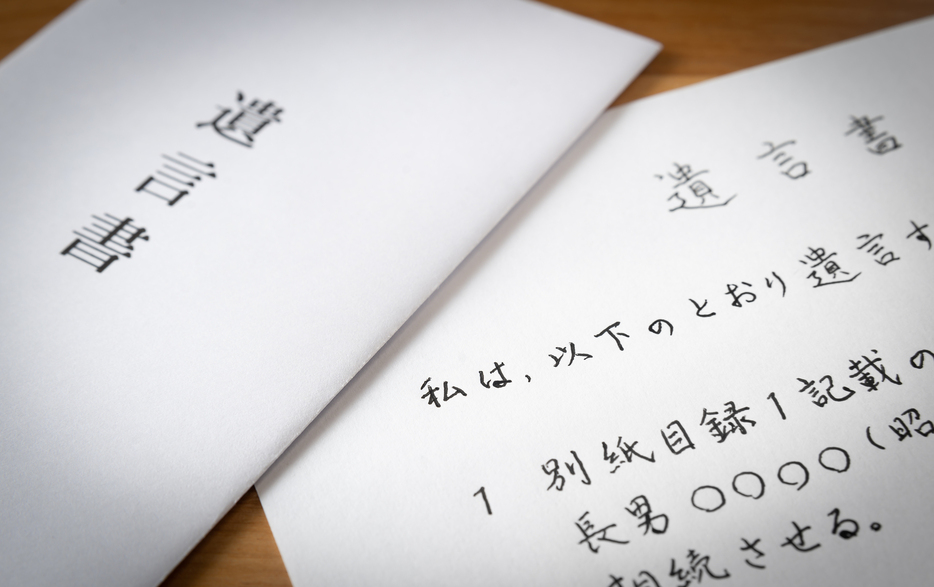 遺言書
遺言書
私は、以下のとおり遺言す
1 別紙目録1記載の
長男〇〇〇〇(昭
相続させる。